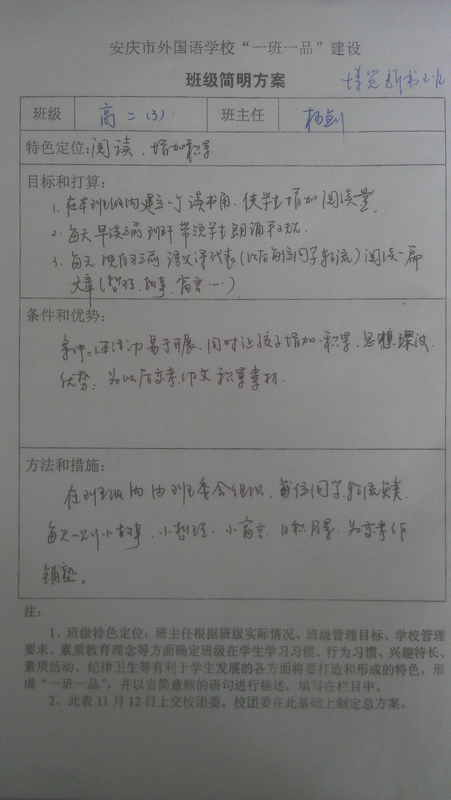 安庆市外国语学校“一班一品”建设
班级简明方案
博览群书
班级 高二(3) 班主任 杨剑
特色定位:阅读、增加积学
目标和打算:
1. 在本班级内建立一个读书角,使学生增加阅读量.
2. 每天早读之前班干带领学生朗诵
3. 每天晚自习之前语文课代表(以后每位同学轮流)阅读一篇
文章(哲理、故事、寓言…)
条件和优势:
条件:1.本活动易于开展、同时让孩子增加积学、思想深、
优势:为以后高考作文积累素材.
方法和措施:
在班级内由班委会组织,每位同学轮流负责.
每天一则小故事、小哲理、小寓言、日积月累、为高考作
铺垫。
注:
1、班级特色定位:班主任根据班级实际情况、班级管理目标、学校管理
要求、素质教育理念等方面确定班级在学生学习习惯、行为习惯、兴趣特长、
素质活动、纪律卫生等有利于学生发展的各方面将要打造和形成的特色,形
成“一班一品”,并以言简意赅的语句进行描述,填写在栏目中。
2、此表11月12日上交校团委。校团委在此基础上制定总方案。